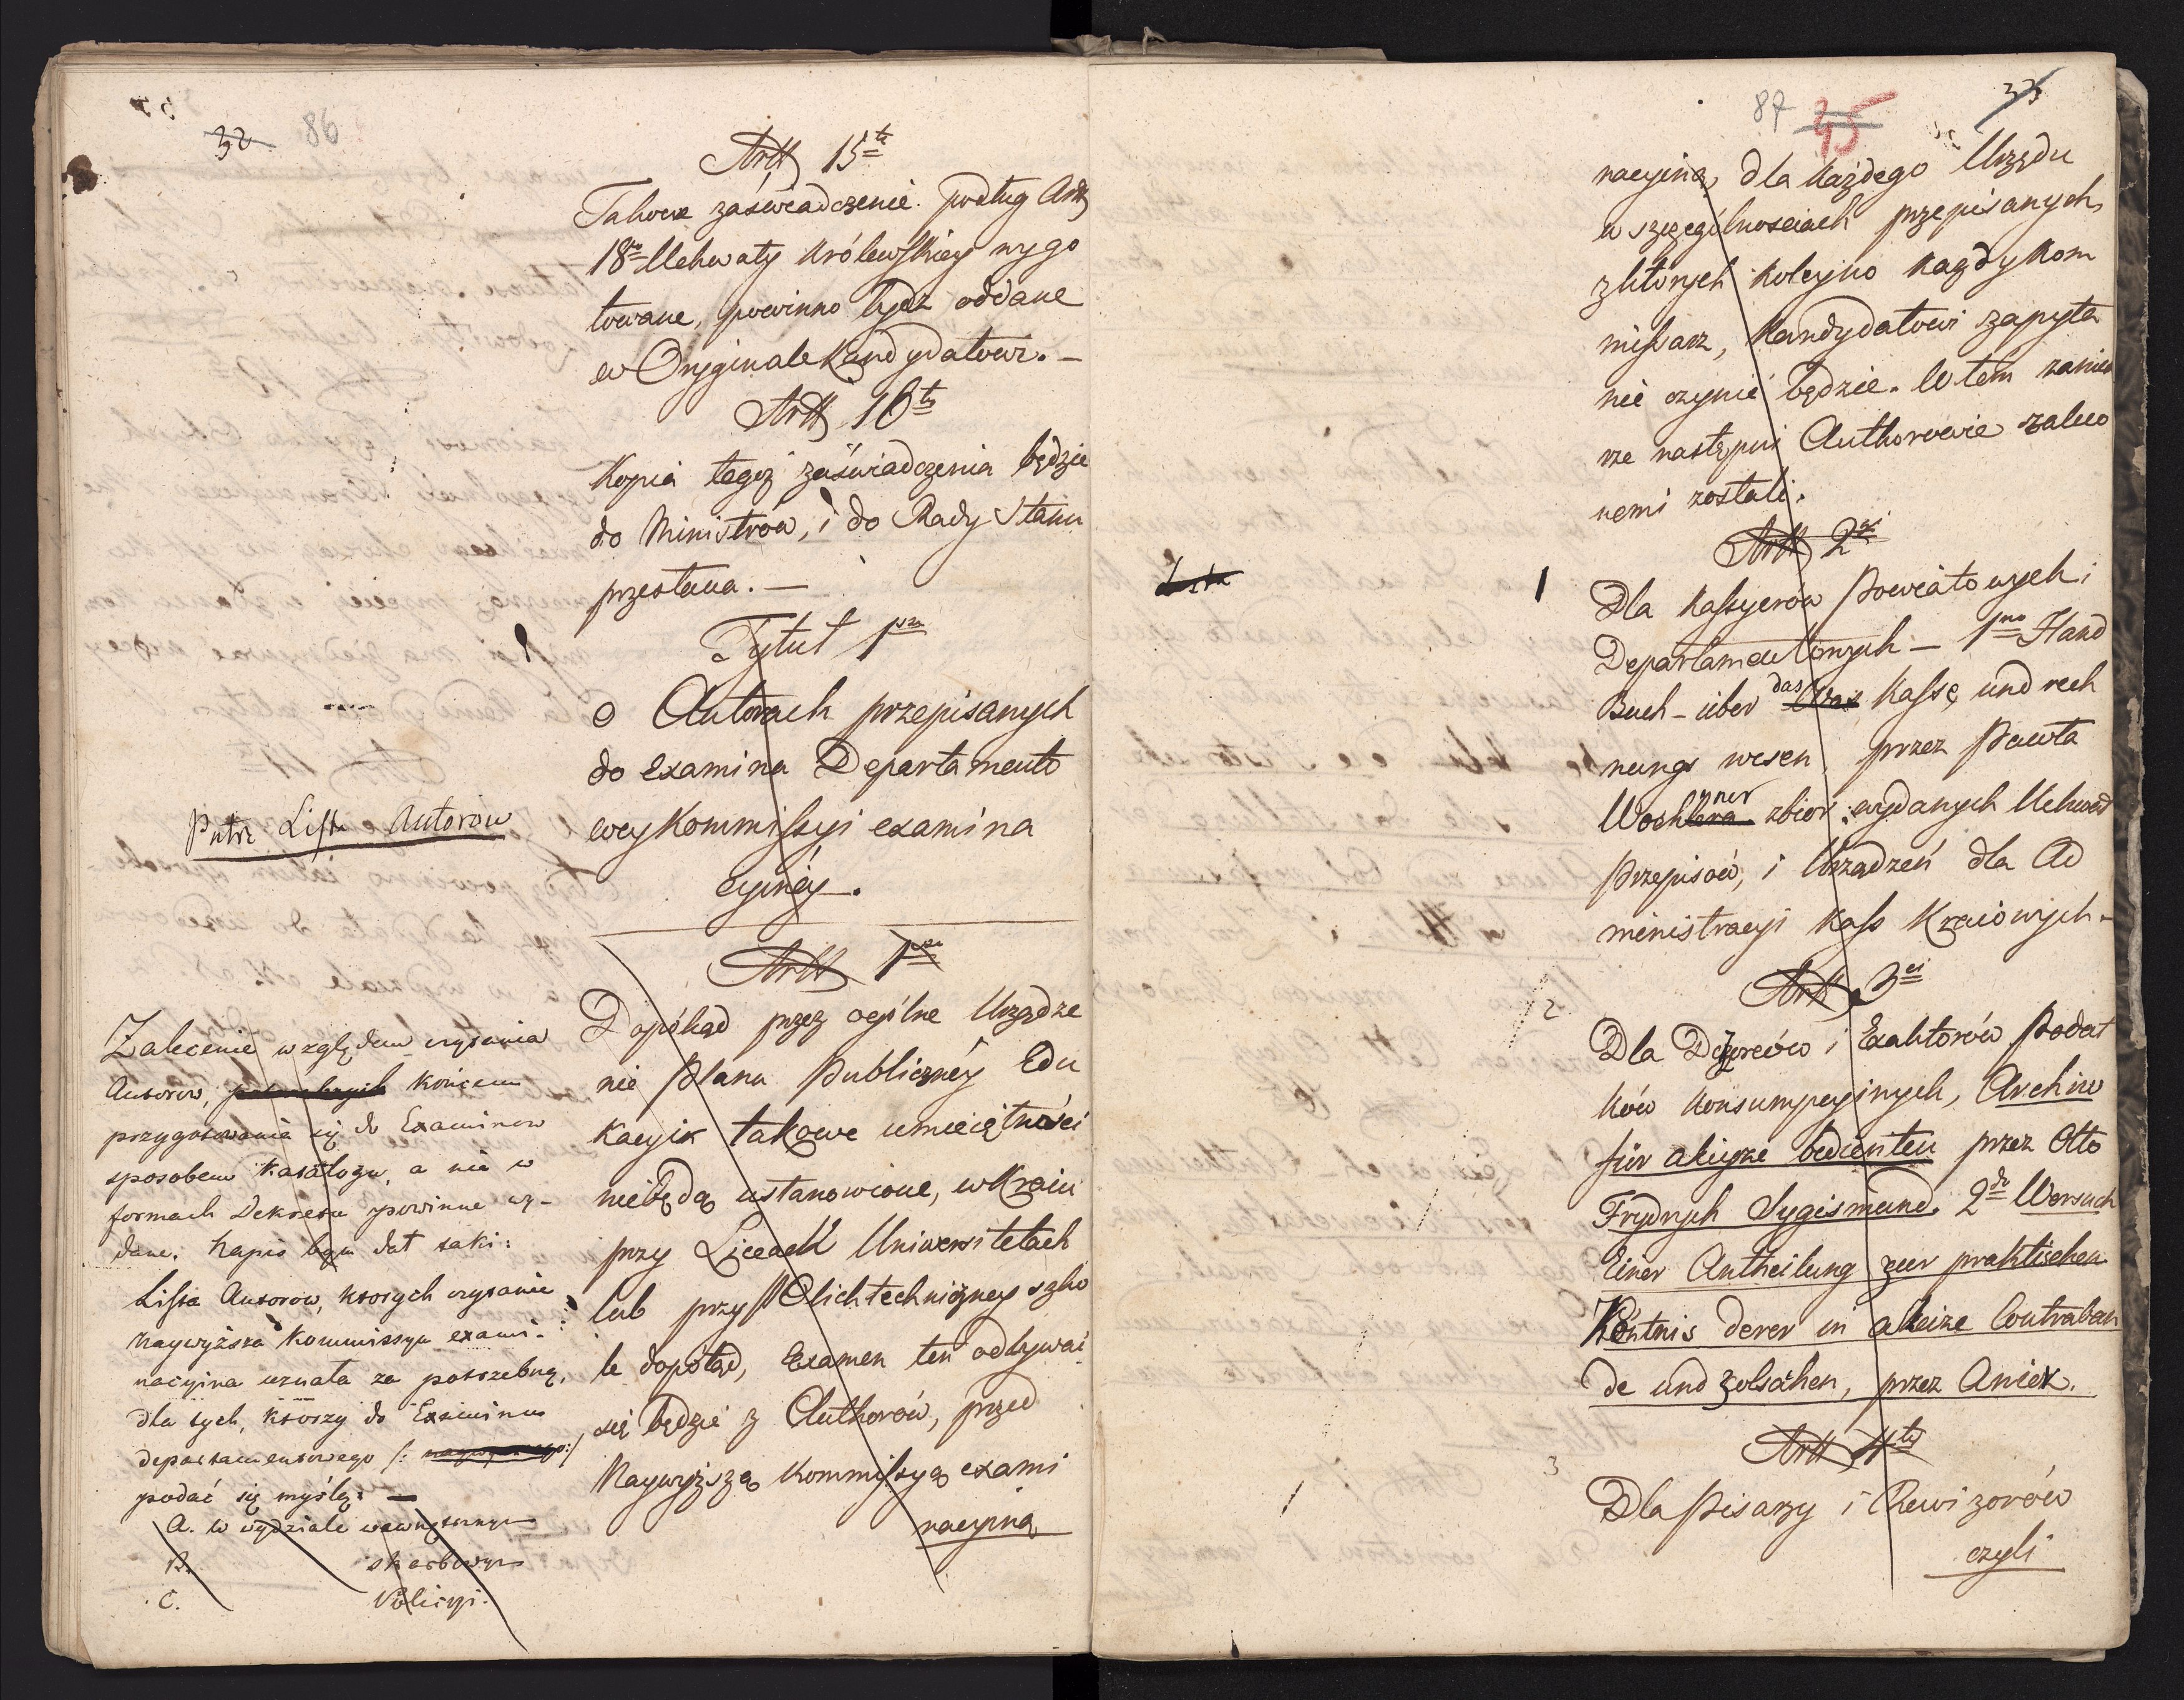 32 86
Artt 15ty
Takowe zaświadczenie podług Artt
18go Uchwały Królewskiey wygo
towane, powinno bydź oddane
w Oryginale Kandydatowi. —
Artt 16ty
Kopia tegoż zaświadczenia będzie
do Ministrów, i do Rady Stanu
przesłana. —
Tytuł 1szy
o Autorach przepisanych
do examina Departamento
wey Kommissyi examina
cyinéy.
Patrz Lista Autorow
Artt 1szy
Dopókąd przez ogólne Urządze
nie Planu Publicznéy Edu
kacyi takowe umieiętności
niebędą ustanowione, w Kraiu
przy Liceach Uniwersitetach
lub przy Polichtechniczney szko
le dopotąd, Examen ten odbywać
się będzie z Authorów, przed
Naywyższą Kommissyą exami
nacyiną
Zalecenie względem czytania
Autorow, końcem
przygotowania się do Examinow
sposobem Katalogu, a nie w
formach Dekretu powinne wy-
dane. Napis bym dał taki:
Lista Autorow, ktorych czytanie
Naywyższa Kommissya exami-
nacyina uznała za potrzebną,
dla tych, ktorzy do Examinu
departamentowego /: :/
podać się myślą: —
A. w wydziale wewnętrznym
B. skarbowym
C. Policyi.
87 45 33
nacyiną, dla każdego Urzędu
w szczególnosciach przepisanych,
z ktorych koleyno każdy Kom
missarz, Kandydatowi zapyta
nie czynić będzie. W tém zamia
rze następni Authorowie zaleco
nemi zostali.
Artt 2gi
1
Dla Kassyerów Powiatowych i
Departamentowych — 1mo Hand
Buch – über das Kasse und rech
nungs wesen, przez Pawła
Wochner zbior wydanych Uchwał
Przepisów, i Urządzeń dla Ad
ministracyi Kass Kraiowych. —
Artt 3ci
2
Dla Dozorców i Exaktorów Podat
ków Konsumpcyinych, Archiw
für akcyze bedienten przez Otto
Frydrych Sygismund. 2do Wersuch
Einer Antheilung zur praktischen
Kentnis derer in akcize Contraban
de und Zolsachen, przez Anier.
Artt 4ty
3
Dla Pisarzy i Rewizorów
czyli